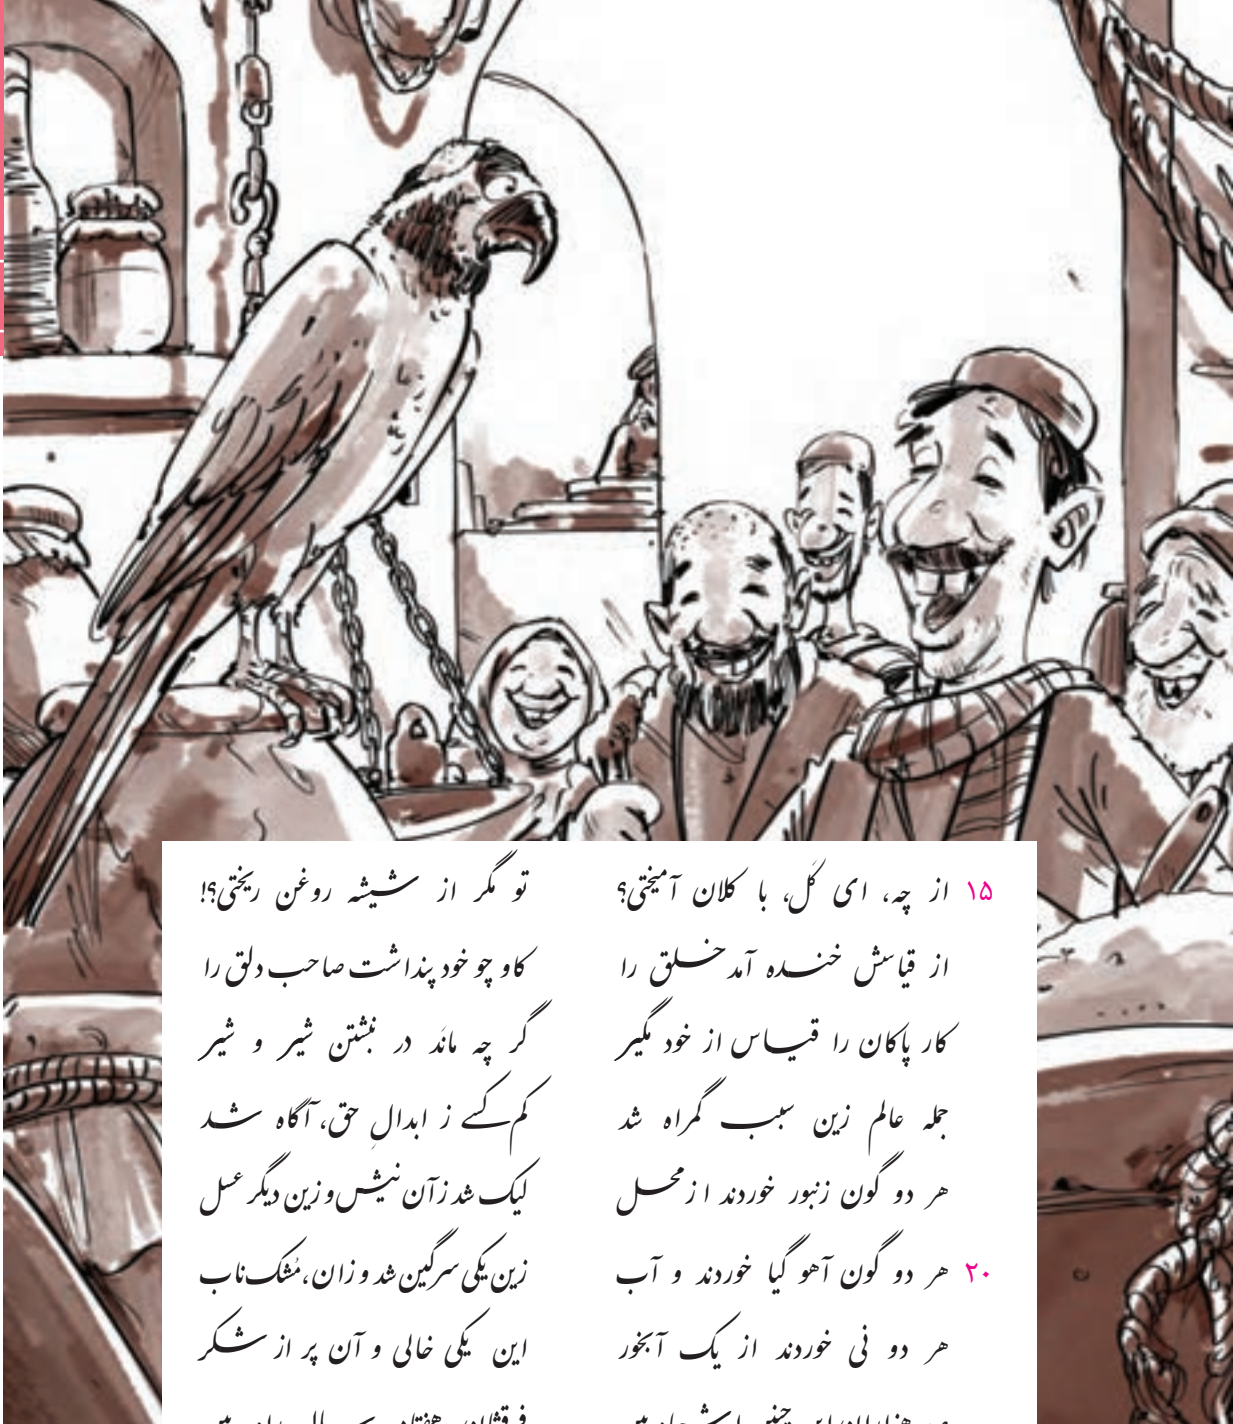 ۱۵ از چه، ای کَل، با کلان آمیختی؟ تو مگر از شیشه روغن ریختی؟!
از قیاسش خنده آمد خلق را کاو چو خود پنداشت صاحب دلق را
کار پاکان را قیاس از خود مگیر گر چه مانَد در نبشتن شیر و شیر
جمله عالم زین سبب گمراه شد کم کسے ز ابدالِ حق، آگاه شد
هر دو گون زنبور خوردند از محل لیک شد زآن نیش و زین دیگر عسل
۲۰ هر دو گون آهو گیا خوردند و آب زین یکی سرگین شد و زان، مُشک ناب
هر دو نی خوردند از یک آبخور این یکی خالی و آن پر از شکر